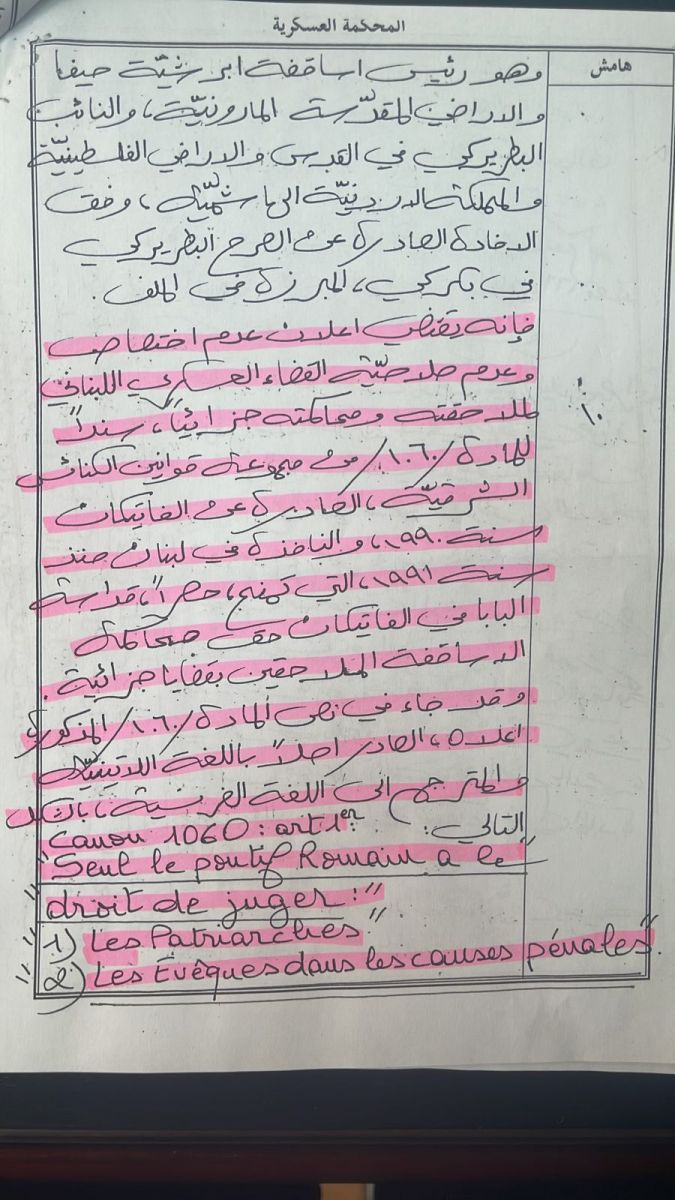 المحكمة العسكرية
هامش
وهو رئيس اساقفة ابرشيّة حيفا
والاراضي المقدّسة المارونيّة، والنائب
البطريركي في القدس والاراضي الفلسطينيّة
والمملكة الاردنيّة الهاشميّة، وفق
الافادة الصادرة عن الصرح البطريركي
في بكركي، المبرزة في الملف.
فإنه يقتضي اعلان عدم اختصاص
وعدم صلاحيّة القضاء العسكري اللبناني
لملاحقته ومحاكمته جزائياً، سنداً
للمادة /١٠٦٠/ من مجموعة قوانين الكنائس
الشرقيّة، الصادرة عن الفاتيكان
سنة ١٩٩٠، والنافذة في لبنان منذ
سنة ١٩٩١، التي تمنح، حصراً، قداسة
البابا في الفاتيكان حق محاكمة
الاساقفة الملاحقين بقضايا جزائية.
وقد جاء في نص المادة /١٠٦٠/ المذكورة
اعلاه، الصادر اصلاً باللغة اللاتينيّة
والمترجم الى اللغة الفرنسية، بالشكل
التالي: Canon 1060: art 1er
"Seul le pontif Romain a le
droit de juger:"
"1) Les Patriarches"
"2) Les Evêques dans les causes pénales".
١٠